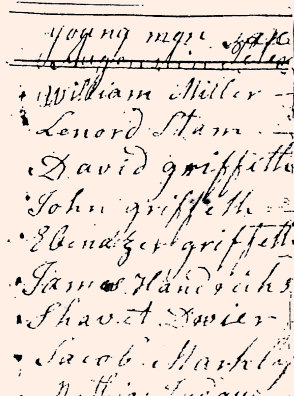 young men
William Miller
Lenord Stam
David griffeth
John griffeth
Ebenatzer griffeth
James Handrichs
Shavet Dwier
Jacob Markley